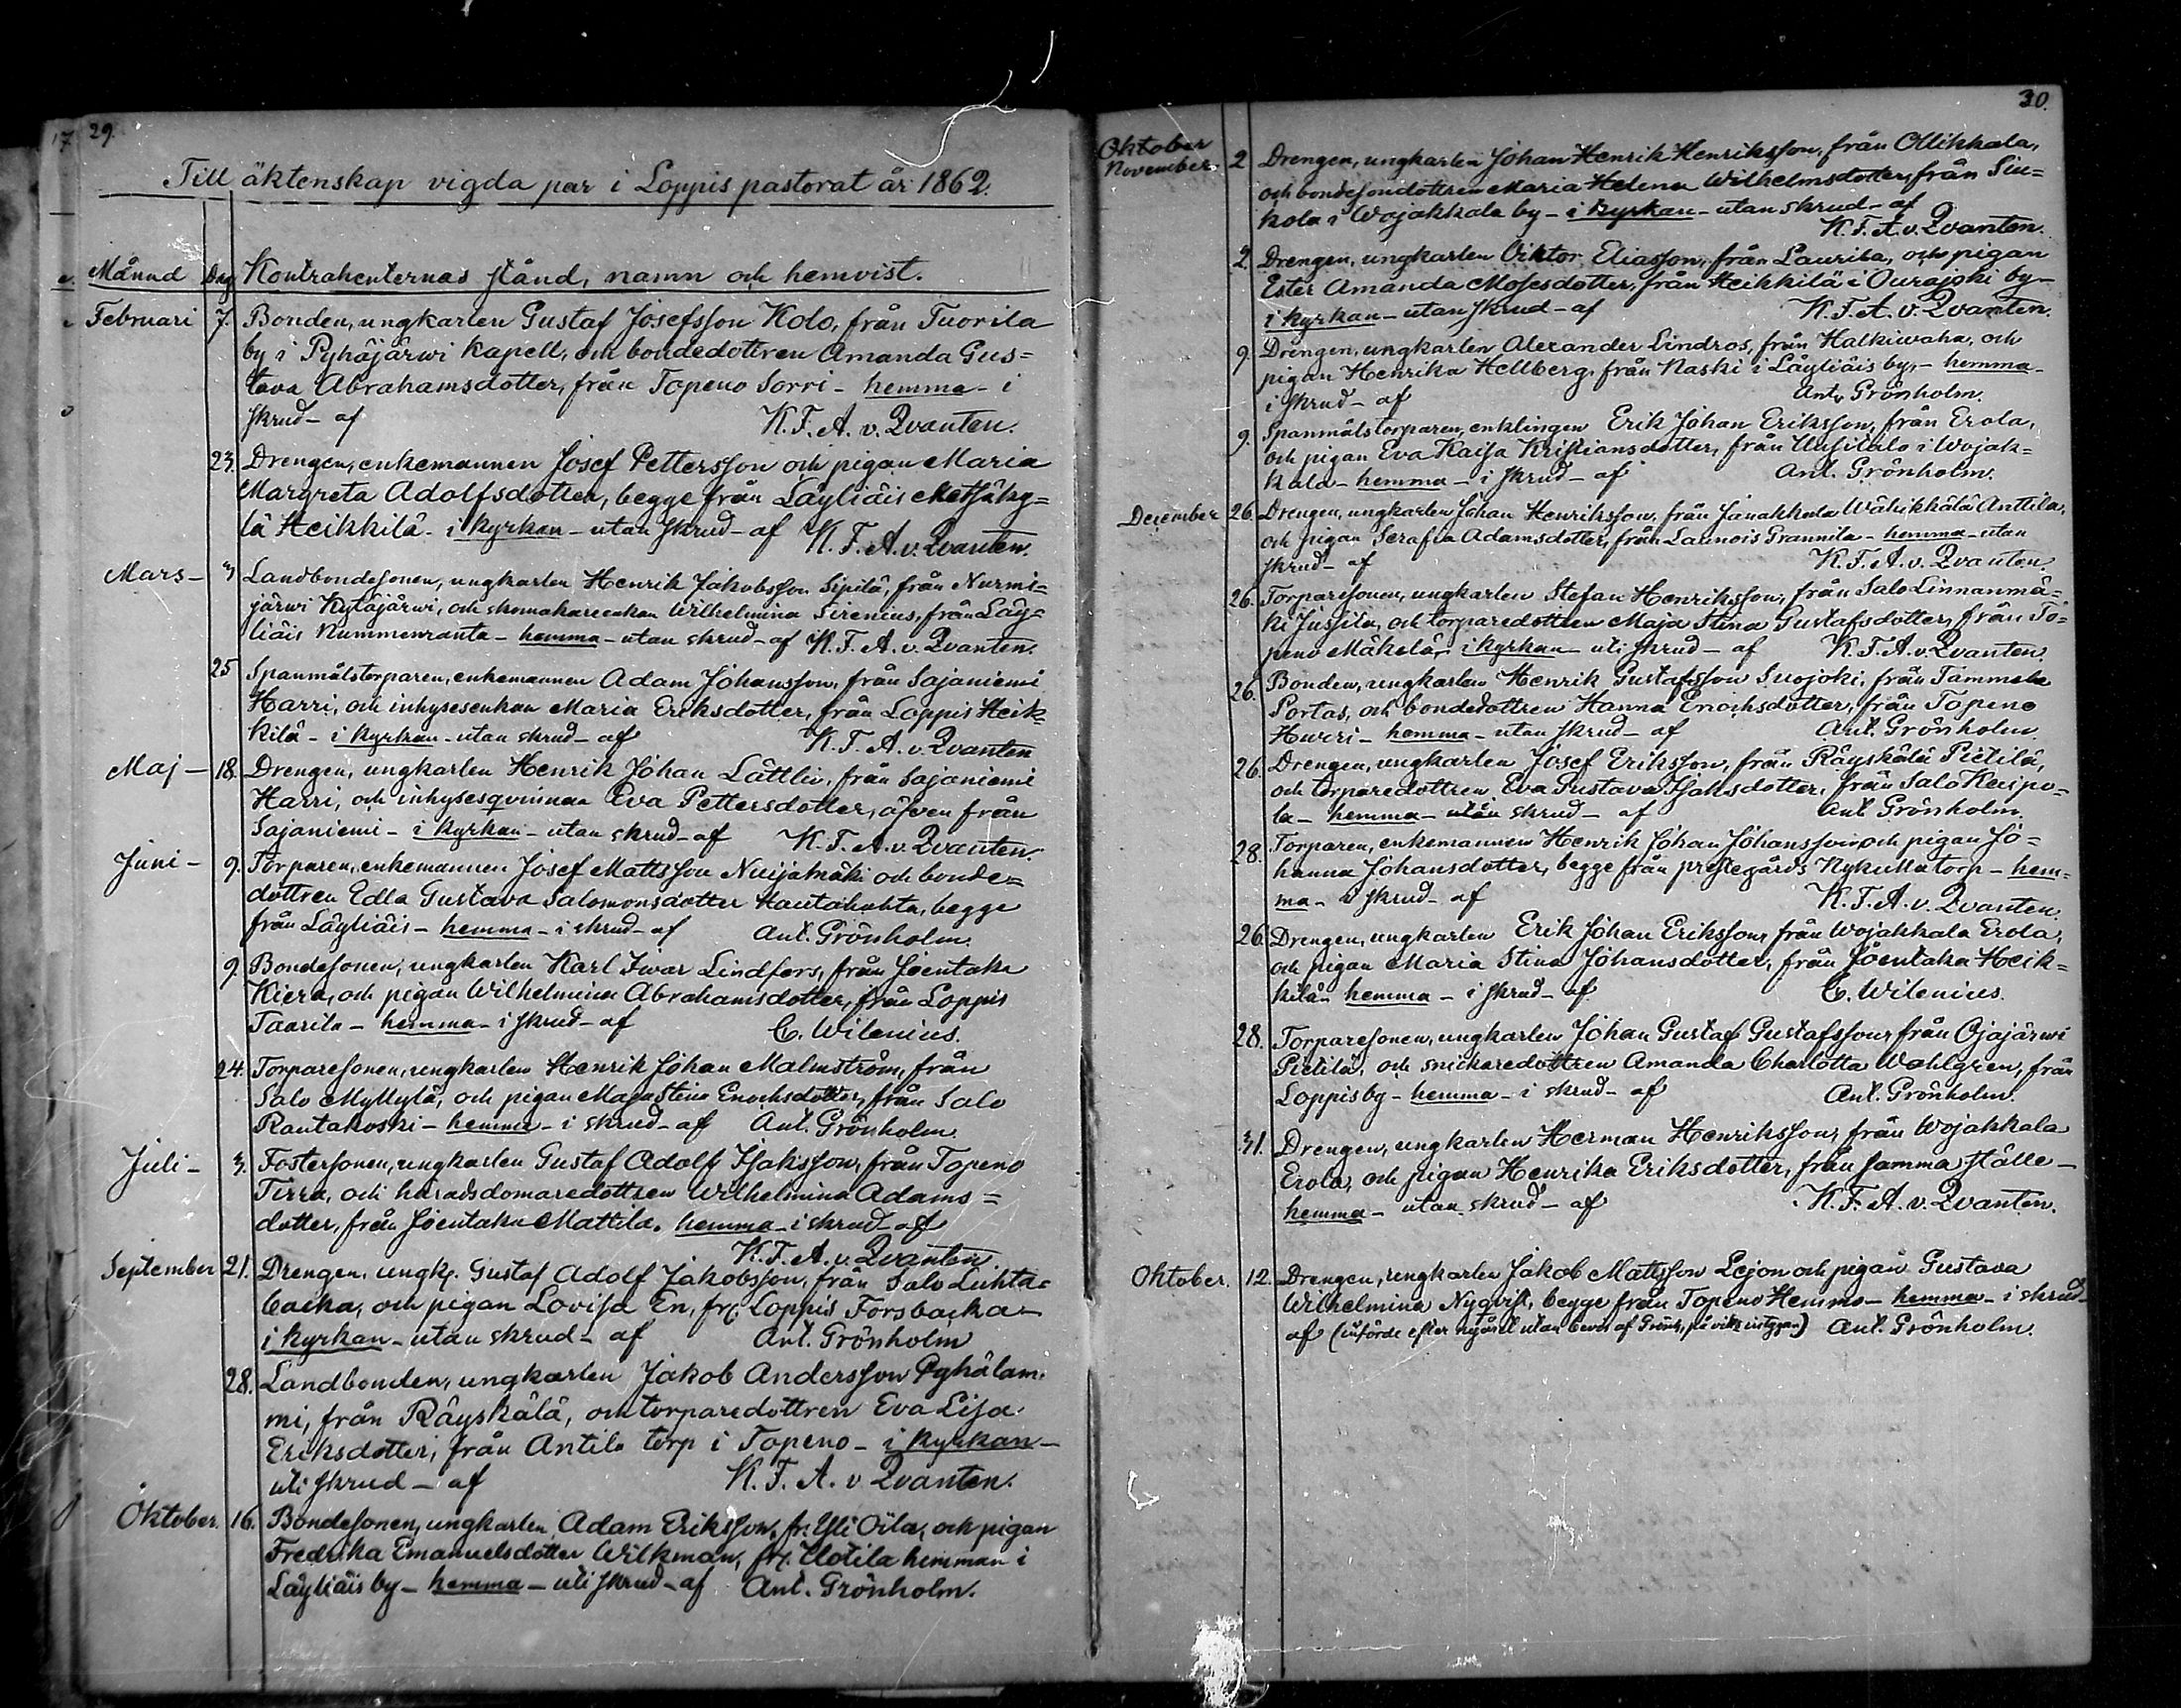 17 29.
Till äktenskap vigda par i Loppis pastorat år 1862.
Månad Dag Kontrahenternas stånd, namn och hemvist.
Februari 7. Bonden, ungkarlen Gustaf Josefsson Kolo, från Tuorila
by i Pyhäjärwi kapell, och bondedottren Amanda Gus=
tava Abrahamsdotter, från Topeno Sorri - hemma - i
skrud - af K. F. A. v. Qvanten.
23. Drengen, enkemannen Josef Pettersson och pigan Maria
Margreta Adolfsdotter, begge från Läyliäis Metsäky=
lä Heikkilä - i kyrkan - utan skrud - af K. F. A. v. Qvanten.
Mars - 3 Landbondesonen, ungkarlen Henrik Jakobsson Sipilä, från Nurmi=
järwi Kytäjärwi, och skomakareenkan Wilhelmina Sirenius, från Läy=
liäis Nummenranta - hemma - utan skrud - af K. F. A. v. Qvanten.
25 Spanmålstorparen, enkemannen Adam Johansson, från Sajaniemi
Harri, och inhysesenkan Maria Eriksdotter, från Loppis Heik=
kilä - i kyrkan - utan skrud - af K. F. A. v. Qvanten
Maj - 18. Drengen, ungkarlen Henrik Johan Lättliv, från Sajaniemi
Harri, och inhysesqvinnan Eva Pettersdotter, äfven från
Sajaniemi - i kyrkan - utan skrud - af K. F. A. v. Qvanten.
Juni - 9. Torparen, enkemannen Josef Mattsson Nuijamäki och bonde=
dottren Edla Gustava Salomonsdotter Hautakohta, begge
från Läyliäis - hemma - i skrud - af Ant. Grönholm.
9. Bondesonen, ungkarlen Karl Iwar Lindfors, från Joentaka
Kiera, och pigan Wilhelmina Abrahamsdotter, från Loppis
Taarila - hemma - i skrud - af C. Wilenius.
24. Torparesonen, ungkarlen Henrik Johan Malmström, från
Salo Myllylä, och pigan Maja Stina Enochsdotter, från Salo
Rautakoski - hemma - i skrud - af Ant. Grönholm.
Juli - 3. Fostersonen, ungkarlen Gustaf Adolf Isaksson, från Topeno
Tirra, och häradsdomaredottren Wilhelmina Adams=
dotter, från Joentaka Mattila. hemma - i skrud - af
K. F. A. v. Qvanten
September 21. Drengen, ungk. Gustaf Adolf Jakobsson, från Salo Luhta=
backa, och pigan Lovisa En, fr. Loppis Forsbacka -
i kyrkan - utan skrud - af Ant. Grönholm
28. Landbonden, ungkarlen Jakob Andersson Pyhälam=
mi, från Räyskälä, och torparedottren Eva Lisa
Eriksdotter, från Antila torp i Topeno - i kyrkan -
uti skrud - af K. F. A. v Qvanten.
Oktober. 16. Bondesonen, ungkarlen Adam Eriksson, fr. Yli Oila, och pigan
Fredrika Emanuelsdotter Wilkman, fr. Uotila hemman i
Läyliäis by - hemma - uti skrud - af Ant. Grönholm.
30.
Oktober
November. 2 Drengen, ungkarlen Johan Henrik Henriksson, från Ollikkala,
och bondesondottren Maria Helena Wilhelmsdotter, från Siu=
kola i Wojakkala by - i kyrkan - utan skrud - af
K. F. A. v. Qvanten.
2. Drengen, ungkarlen Viktor Eliasson, från Laurila, och pigan
Ester Amanda Mosesdotter, från Heikkilä i Ourajoki by -
i kyrkan - utan skrud - af K. F. A. v. Qvanten.
9. Drengen, ungkarlen Alexander Lindros, från Halkiwaha, och
pigan Henrika Hellberg, från Naski i Läyliäis by, - hemma -
i skrud - af Ant. Grönholm.
9. Spanmålstorparen, enklingen Erik Johan Eriksson, från Erola,
och pigan Eva Kaisa Kristiansdotter, från Uusitalo i Wojak=
kala - hemma - i skrud - af Ant. Grönholm.
December 26. Drengen, ungkarlen Johan Henriksson, från Janakkala Wähikkälä Anttila,
och pigan Serafia Adamsdotter, från Launois Prannila - hemma - utan
skrud - af K. F. A. v. Qvanten
26. Torparesonen, ungkarlen Stefan Henriksson, från Salo Linnanmä=
ki Jussila, och torparedottren Maja Stina Gustafsdotter, från To=
peno Mäkelä, i kyrkan - uti skrud - af K. F. A. v. Qvanten.
26. Bonden, ungkarlen Henrik Gustafsson Suojoki, från Tammela
Portas, och bondedottren Hanna Enochsdotter, från Topeno
Hurri - hemma - utan skrud - af Ant. Grönholm
26. Drengen, ungkarlen Josef Eriksson, från Räyskälä Pietilä,
och torparedottren Eva Gustava Isaksdotter, från Salo Keipo=
la - hemma - utan skrud - af Ant Grönholm.
28. Torparen, enkemannen Henrik Johan Johansson och pigan Jo=
hanna Johansdotter, begge från prestegårds Nykulla torp - hem=
ma - i skrud - af K. F. A. v. Qvanten.
26. Drengen, ungkarlen Erik Johan Eriksson, från Wojakkala Erola,
och pigan Maria Stina Johansdotter, från Joentaka Heik=
kilä - hemma - i skrud - af C. Wilenius.
28. Torparesonen, ungkarlen Johan Gustaf Gustafsson, från Ojajärwi
Pietilä, och snickaredottren Amanda Charlotta Wahlgren, från
Loppis by - hemma - i skrud - af Ant. Grönholm.
31. Drengen, ungkarlen Herman Henriksson, från Wojakkala
Erola, och pigan Henrika Eriksdotter, från samma ställe -
hemma - utan skrud - af K. F. A. v. Qvanten.
Oktober. 12. Drengen, ungkarlen Jakob Mattsson Lejon och pigan Gustava
Wilhelmina Nyqvist, begge från Topeno Hemmo - hemma - i skrud -
af (införde efter nyåret utan bevis af Grönh., på) Ant. Grönholm.